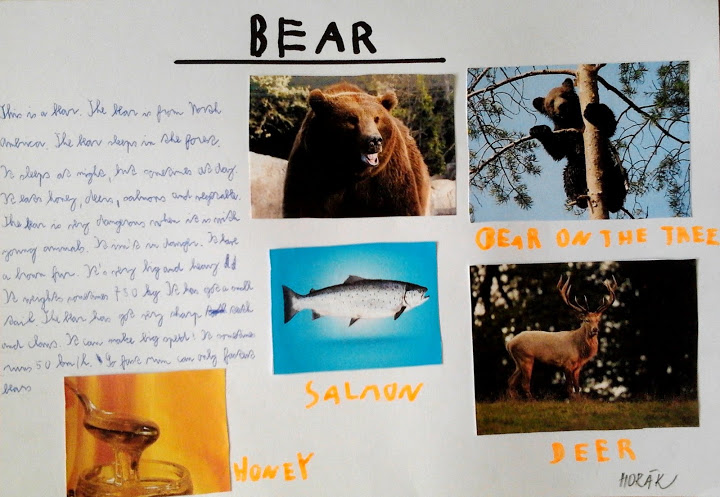 BEAR
This is a bear. The bear is from North
America. The bear sleeps in the forest.
It sleeps at night, but sometimes at day.
It eats honey, deers, salmons and vegetable.
The bear is very dangerous when it is with
young animals. It isn't in danger. It have
a brown fur. It's very big and heavy
It weights sometimes 750 kg. It has got a small
The bear has got very sharp teeth
and claws. It can make big speed! It sometimes
runs 50 km/h. So fast run can only fastest
bears
BEAR ON THE TREE
SALMON
DEER
HONEY
HORÁK